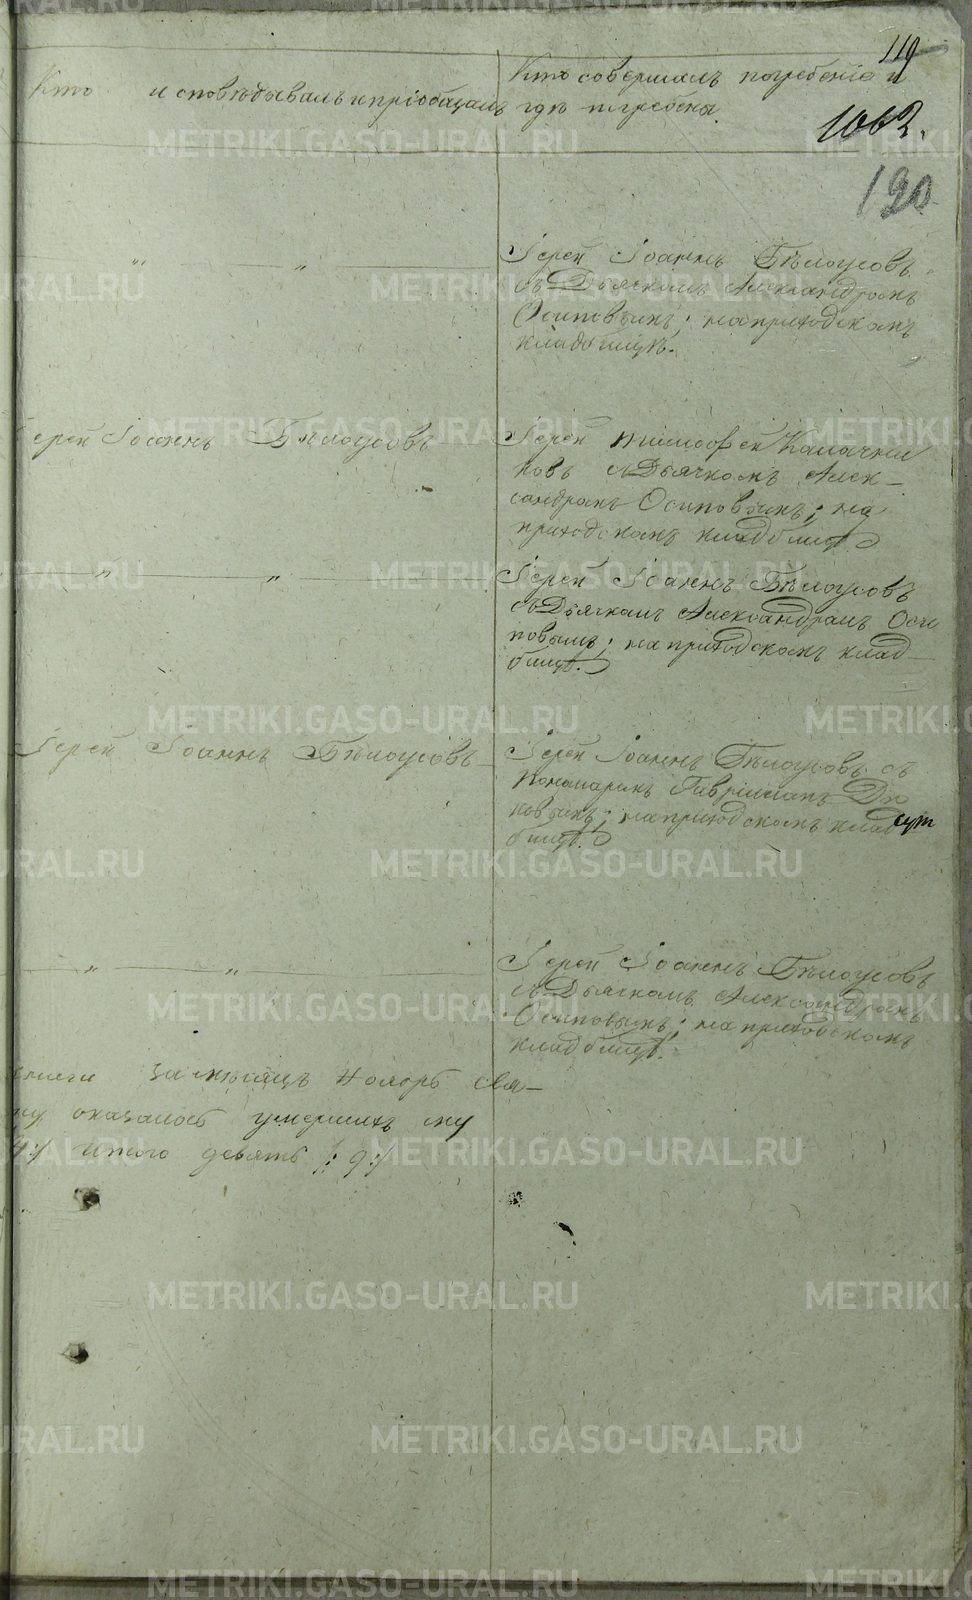 119
Кто исповѣдывалъ и пріобщалъ
Кто совершалъ погребеніе и
гдѣ погребены.
1062.
120
" "
Іерей Іоаннъ Бѣлоусовъ
съ Дьячкомъ Александромъ
Осиповымъ; на приходскомъ
кладбищѣ.
Іерей Іоаннъ Бѣлоусовъ
Іерей Тимофей Калачни
ковъ съ Дьячкомъ Алек-
сандромъ Осиповымъ; на
приходскомъ кладбищѣ
" "
Іерей Іоаннъ Бѣлоусовъ
съ Дьячкомъ Александромъ Оси
повымъ; на приходскомъ клад-
бищѣ.
Іерей Іоаннъ Бѣлоусовъ
Іерей Іоаннъ Бѣлоусовъ съ
Пономаремъ Гавріиломъ
ковымъ; на приходскомъ клад
бищѣ.
" "
Іерей Іоаннъ Бѣлоусовъ
съ Дьячкомъ Александромъ
Осиповымъ; на приходскомъ
кладбищѣ.
за мѣсяцъ Ноябрь
оказалось умершихъ му
итого девять /:9:/
METRIKI.GASO-URAL.RU